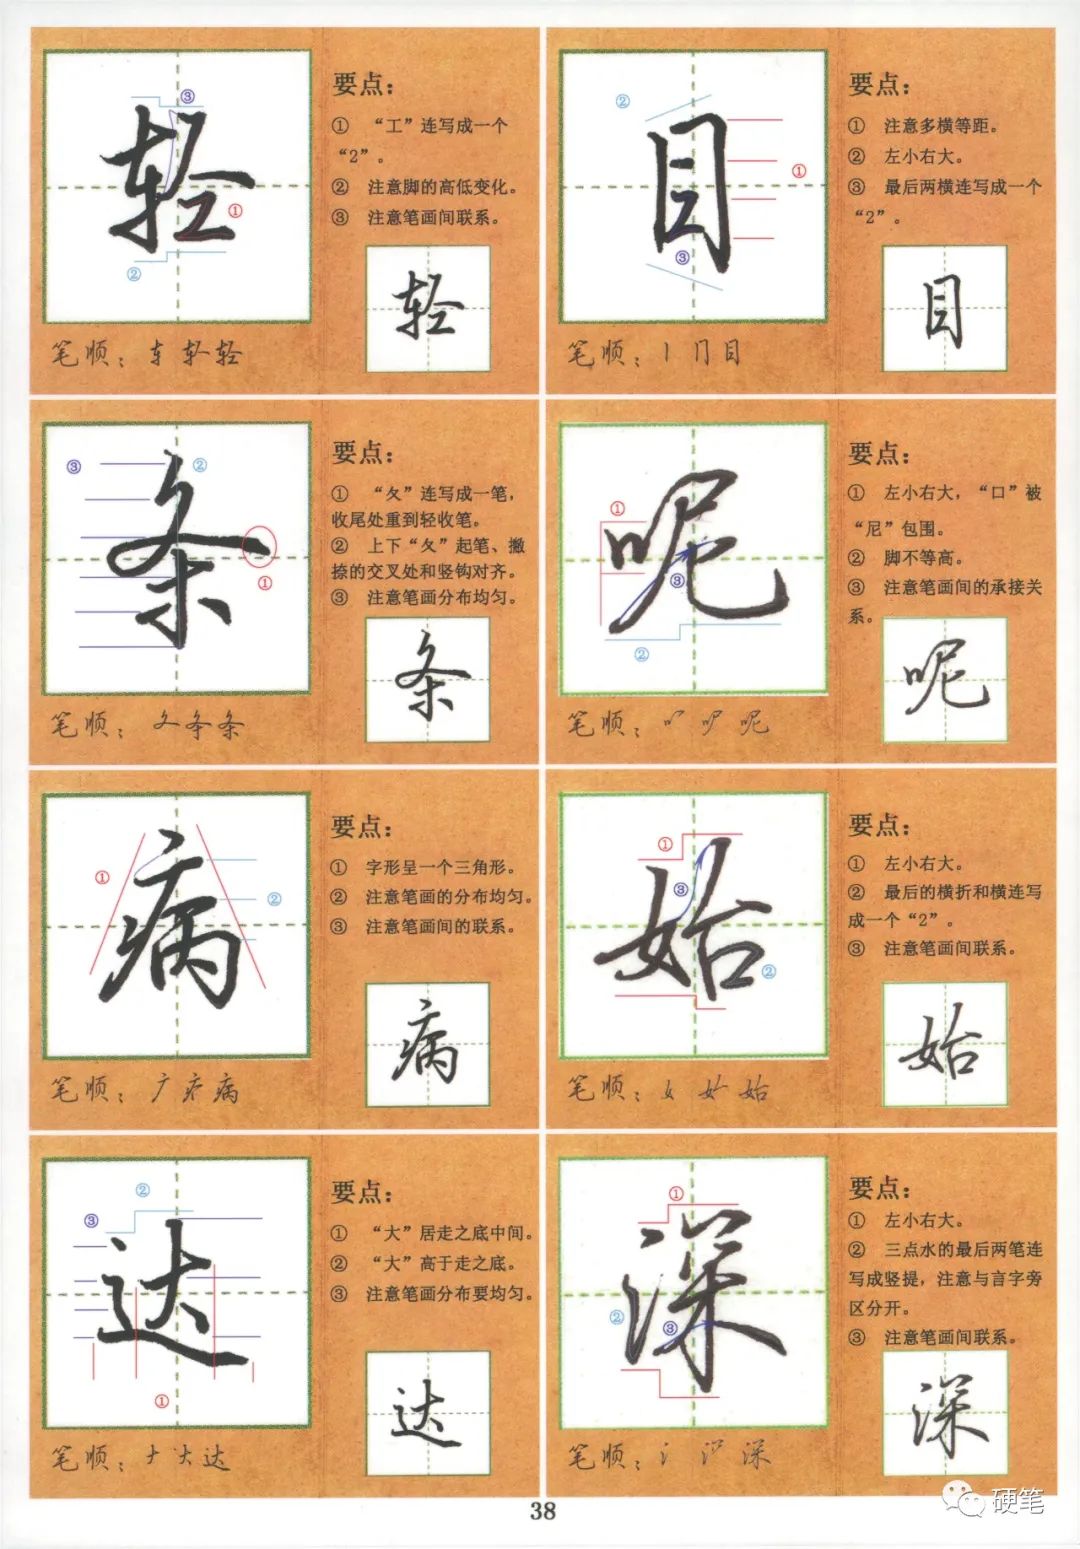 轻
③
②
①
②
要点：
① “工”连写成一个
“2”。
② 注意脚的高低变化。
③ 注意笔画间联系。
轻
笔顺：车 轻 轻
目
②
①
③
要点：
① 注意多横等距。
② 左小右大。
③ 最后两横连写成一个
“2”。
目
笔顺：丨 冂 目
条
③
②
①
要点：
① “夂”连写成一笔，
收尾处重到轻收笔。
② 上下“夂”起笔、撇
捺的交叉处和竖钩对齐。
③ 注意笔画分布均匀。
条
笔顺：夂 条 条
呢
①
③
②
要点：
① 左小右大，“口”被
“尼”包围。
② 脚不等高。
③ 注意笔画间的承接关
系。
呢
笔顺：呢
病
①
②
要点：
① 字形呈一个三角形。
② 注意笔画的分布均匀。
③ 注意笔画间的联系。
病
笔顺：广 疒 病
始
①
③
②
要点：
① 左小右大。
② 最后的横折和横连写
成一个“2”。
③ 注意笔画间联系。
始
笔顺：女 始
达
②
③
①
要点：
① “大”居走之底中间。
② “大”高于走之底。
③ 注意笔画分布要均匀。
达
笔顺：ナ 大 达
深
①
②
③
要点：
① 左小右大。
② 三点水的最后两笔连
写成竖提，注意与言字旁
区分开。
③ 注意笔画间联系。
深
笔顺：氵 深
38
硬笔